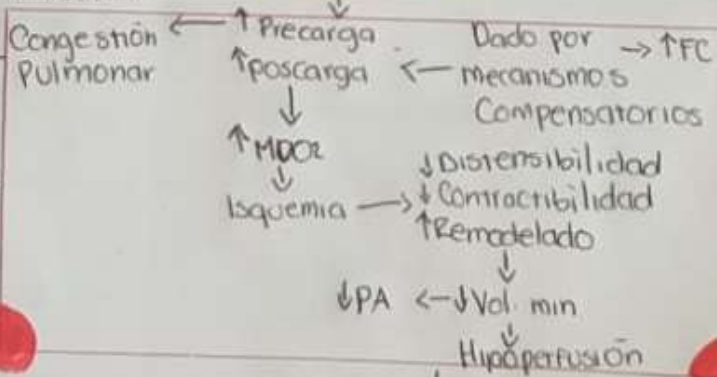 Congestión ← ↑ Precarga
Pulmonar
↑ poscarga ← Dado por mecanismos Compensatorios → ↑FC
↓
↑ MDO2
↓
Isquemia → ↓ Distensibilidad
↓ Contractibilidad
↑ Remodelado
↓
↓PA ← ↓ Vol. min
↓
Hipoperfusión